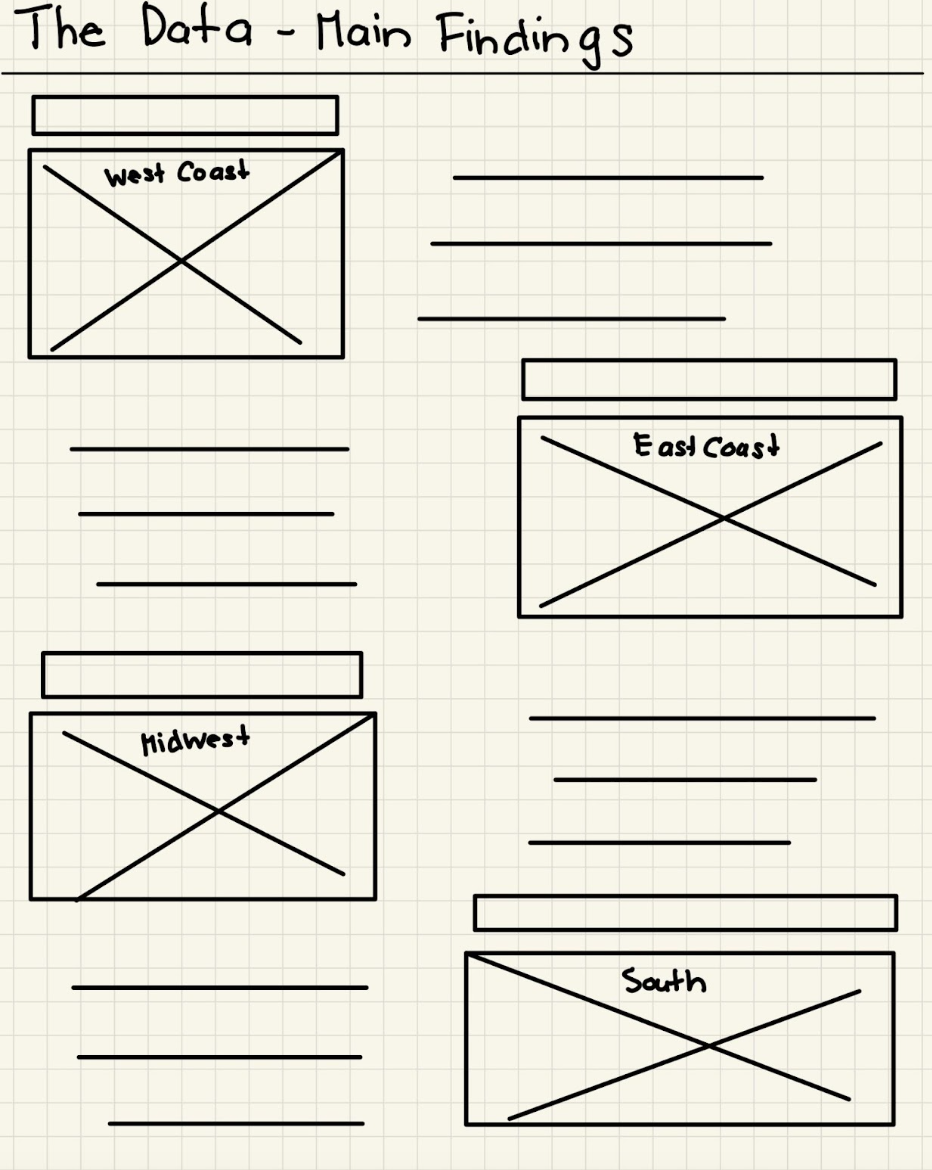 The Data - Main Findings
West Coast
East Coast
Midwest
South